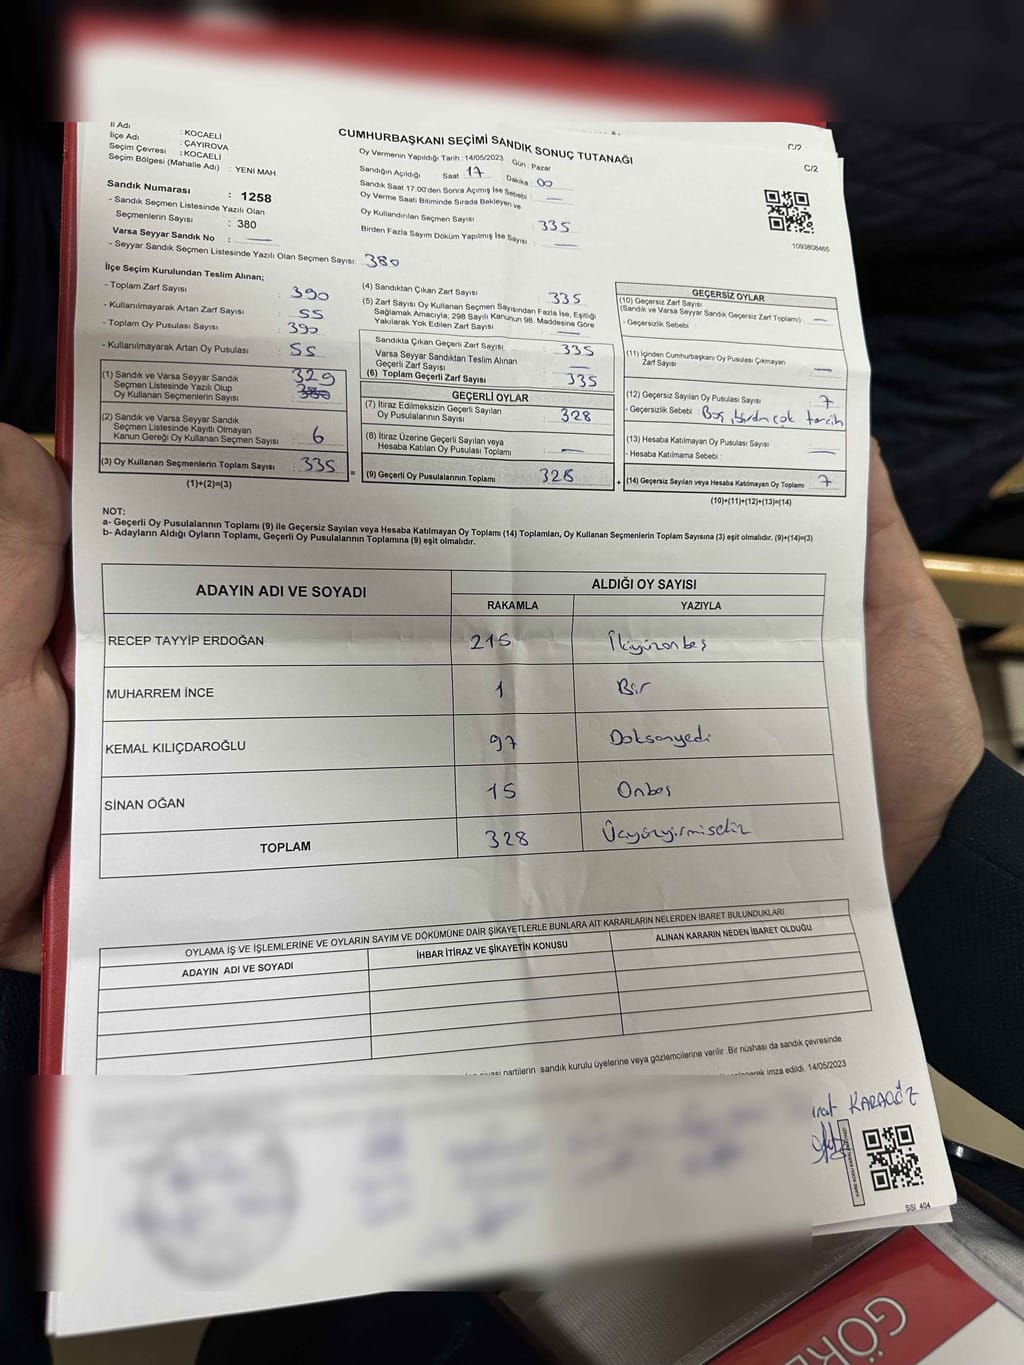 İl Adı : KOCAELİ
İlçe Adı : ÇAYIROVA
Seçim Çevresi : KOCAELİ
Seçim Bölgesi (Mahalle Adı) : YENİ MAH.
Sandık Numarası : 1258
- Sandık Seçmen Listesinde Yazılı Olan
Seçmenlerin Sayısı : 380
Varsa Seyyar Sandık No : —
- Seyyar Sandık Seçmen Listesinde Yazılı Olan Seçmen Sayısı: 380
CUMHURBAŞKANI SEÇİMİ SANDIK SONUÇ TUTANAĞI
Oy Vermenin Yapıldığı Tarih : 14/05/2023 Gün : Pazar
Sandığın Açıldığı Saat : 17 Dakika : 00
Sandık Saat 17:00'den Sonra Açılmış İse Sebebi : —
Oy Verme Saati Bitiminde Sırada Bekleyen ve
Oy Kullandırılan Seçmen Sayısı : 335
Birden Fazla Sayım Döküm Yapılmış İse Sayısı : —
C/2
C/2
1093808465
İlçe Seçim Kurulundan Teslim Alınan;
- Toplam Zarf Sayısı : 390
- Kullanılmayarak Artan Zarf Sayısı : 55
- Toplam Oy Pusulası Sayısı : 390
- Kullanılmayarak Artan Oy Pusulası : 55
(1) Sandık ve Varsa Seyyar Sandık
Seçmen Listesinde Yazılı Olup
Oy Kullanan Seçmenlerin Sayısı : 329
(2) Sandık ve Varsa Seyyar Sandık
Seçmen Listesinde Kayıtlı Olmayan
Kanun Gereği Oy Kullanan Seçmen Sayısı : 6
(3) Oy Kullanan Seçmenlerin Toplam Sayısı : 335
(1)+(2)=(3)
(4) Sandıktan Çıkan Zarf Sayısı : 335
(5) Zarf Sayısı Oy Kullanan Seçmen Sayısından Fazla İse, Eşitliği
Sağlamak Amacıyla; 298 Sayılı Kanunun 98. Maddesine Göre
Yakılarak Yok Edilen Zarf Sayısı : —
Sandıkta Çıkan Geçerli Zarf Sayısı : 335
Varsa Seyyar Sandıktan Teslim Alınan
Geçerli Zarf Sayısı : —
(6) Toplam Geçerli Zarf Sayısı : 335
GEÇERLİ OYLAR
(7) İtiraz Edilmeksizin Geçerli Sayılan
Oy Pusulalarının Sayısı : 328
(8) İtiraz Üzerine Geçerli Sayılan veya
Hesaba Katılan Oy Pusulası Toplamı : —
= (9) Geçerli Oy Pusulalarının Toplamı : 328 +
GEÇERSİZ OYLAR
(10) Geçersiz Zarf Sayısı
(Sandık ve Varsa Seyyar Sandık Geçersiz Zarf Toplamı) : —
- Geçersizlik Sebebi :
(11) İçinden Cumhurbaşkanı Oy Pusulası Çıkmayan
Zarf Sayısı : —
(12) Geçersiz Sayılan Oy Pusulası Sayısı : 7
- Geçersizlik Sebebi : Boş, birden çok tercih
(13) Hesaba Katılmayan Oy Pusulası Sayısı : —
- Hesaba Katılmama Sebebi :
(14) Geçersiz Sayılan veya Hesaba Katılmayan Oy Toplamı : 7
(10)+(11)+(12)+(13)=(14)
NOT:
a- Geçerli Oy Pusulalarının Toplamı (9) ile Geçersiz Sayılan veya Hesaba Katılmayan Oy Toplamı (14) Toplamları, Oy Kullanan Seçmenlerin Toplam Sayısına (3) eşit olmalıdır. (9)+(14)=(3)
b- Adayların Aldığı Oyların Toplamı, Geçerli Oy Pusulalarının Toplamına (9) eşit olmalıdır.
ADAYIN ADI VE SOYADI ALDIĞI OY SAYISI
RAKAMLA YAZIYLA
RECEP TAYYİP ERDOĞAN 215 İkiyüzonbeş
MUHARREM İNCE 1 Bir
KEMAL KILIÇDAROĞLU 97 Doksanyedi
SİNAN OĞAN 15 Onbeş
TOPLAM 328 Üçyüzyirmisekiz
OYLAMA İŞ VE İŞLEMLERİNE VE OYLARIN SAYIM VE DÖKÜMÜNE DAİR ŞİKAYETLERLE BUNLARA AİT KARARLARIN NELERDEN İBARET BULUNDUKLARI
ADAYIN ADI VE SOYADI İHBAR İTİRAZ VE ŞİKAYETİN KONUSU ALINAN KARARIN NEDEN İBARET OLDUĞU
partilerin sandık kurulu üyelerine veya gözlemcilerine verilir. Bir nüshası da sandık çevresinde
imza edildi. 14/05/2023
KARAGÖZ
SSI 404